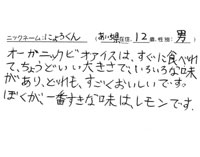 ニックネーム:にょうくん (あい知在住, 12歳, 性別: 男)
オーガニックビオアイスは、すぐに食べれ
て、ちょうどいい大きさで、いろいろな味
があり、どれも、すごくおいしいです。
ぼくが一番すきな味は、レモンです。